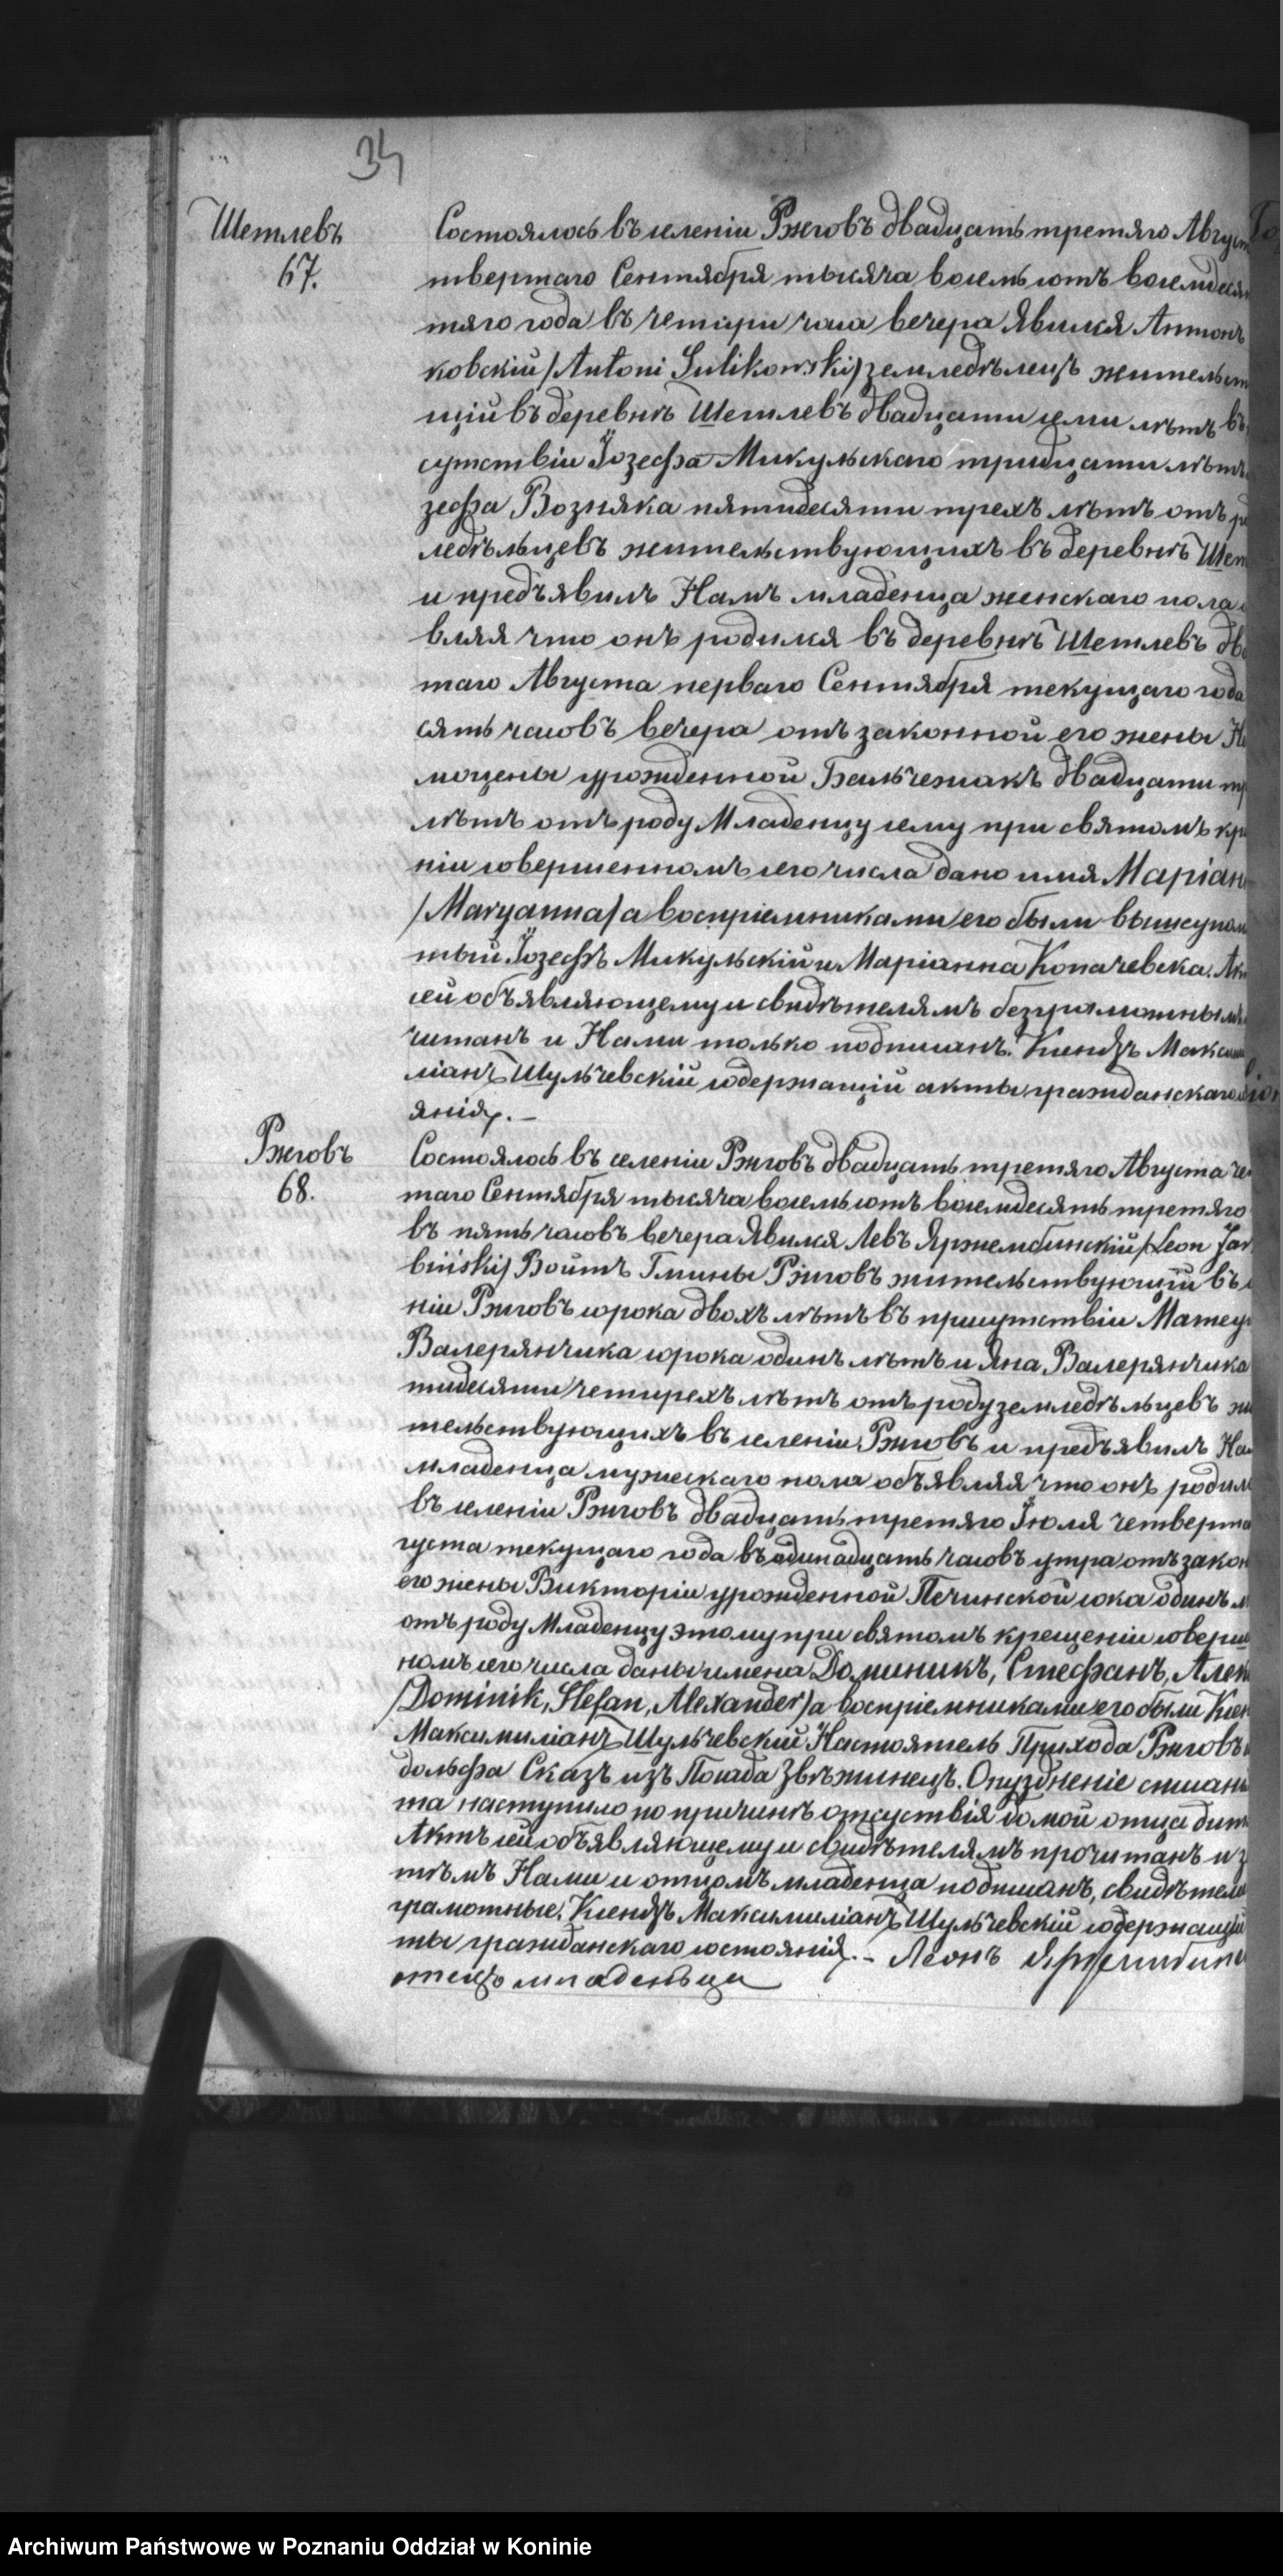 34
Шетлевъ
67.
Состоялось въ селеніи Ржговъ двадцать третяго Август
твертаго Сентября тысяча восемьсотъ восемдесят
тяго года въ четыри часа вечера Явился Антонъ
ковскій /Antoni Sulikowski/ земледѣлецъ жительст
щій въ деревнѣ Шетлевъ двадцати семи лѣтъ въ
сутствіи Іозефа Микульскаго тридцати лѣтъ
зефа Возняка пятидесяти трехъ лѣтъ отъ р
ледѣльцевъ жительствующихъ въ деревнѣ Шет
и предъявилъ Намъ младенца женскаго пола
вляя что онъ родился въ деревнѣ Шетлевъ дв
таго Августа перваго Сентября текущаго года
сять часовъ вечера отъ законной его жены
моцены урожденной Бальчежакъ двадцати
лѣтъ отъ роду Младенцу сему при святомъ кр
ніи совершенномъ сего числа дано имя Маріан
/Maryanna/ а воспріемниками его были вышеупом
тый Іозефъ Микульскій и Маріанна Копачевска. Ак
сей объявляющему и свидѣтелямъ безграмотнымъ
читанъ и Нами только подписанъ. Ксендзъ Макси
ліанъ Шульчевскій содержащій акты гражданскаго
янія. –
Ржговъ
68.
Состоялось въ селеніи Ржговъ двадцать третяго Августа че
таго Сентября тысяча восемьсотъ восемдесять третяго
въ пять часовъ вечера Явился Левъ Яржембинскій /Leon Jar
biński/ Войтъ Гмины Ржговъ жительствующій въ
ніи Ржговъ сорока двохъ лѣтъ въ присутствіи Матеу
Валерянчика сорока одинъ лѣтъ и Яна Валерянчика
тидесяти четирехъ лѣтъ отъ роду земледѣльцевъ жи
тельствующихъ въ селеніи Ржговъ и предъявилъ На
младенца мужескаго пола объявляя что онъ родил
въ селеніи Ржговъ двадцать третяго Іюля четверта
густа текущаго года въ одинадцать часовъ утра отъ закон
его жены Викторіи урожденной Печинской сока одинъ
отъ роду Младенцу этому при святомъ крещеніи соверш
номъ сего числа даны имена Доминикъ, Стефанъ, Алек
/Dominik, Stefan, Alexander/ а воспріемниками его были Ксен
Максимиліанъ Шульчевскій Настоятель Прихода Ржговъ
дольфа Сказъ изъ Посада Звѣжинецъ. Опузднение
та наступило по причинѣ отсуствія домой отца дит
Актъ сей объявляющему и свидѣтелямъ прочитанъ и з
тѣмъ Нами и отцомъ младенца подписанъ, свидѣтели
грамотные. Ксендзъ Максимиліанъ Шульчевскій содержащій
ты гражданскаго состоянія. – Леонъ
отецъ младеньца
Archiwum Państwowe w Poznaniu Oddział w Koninie